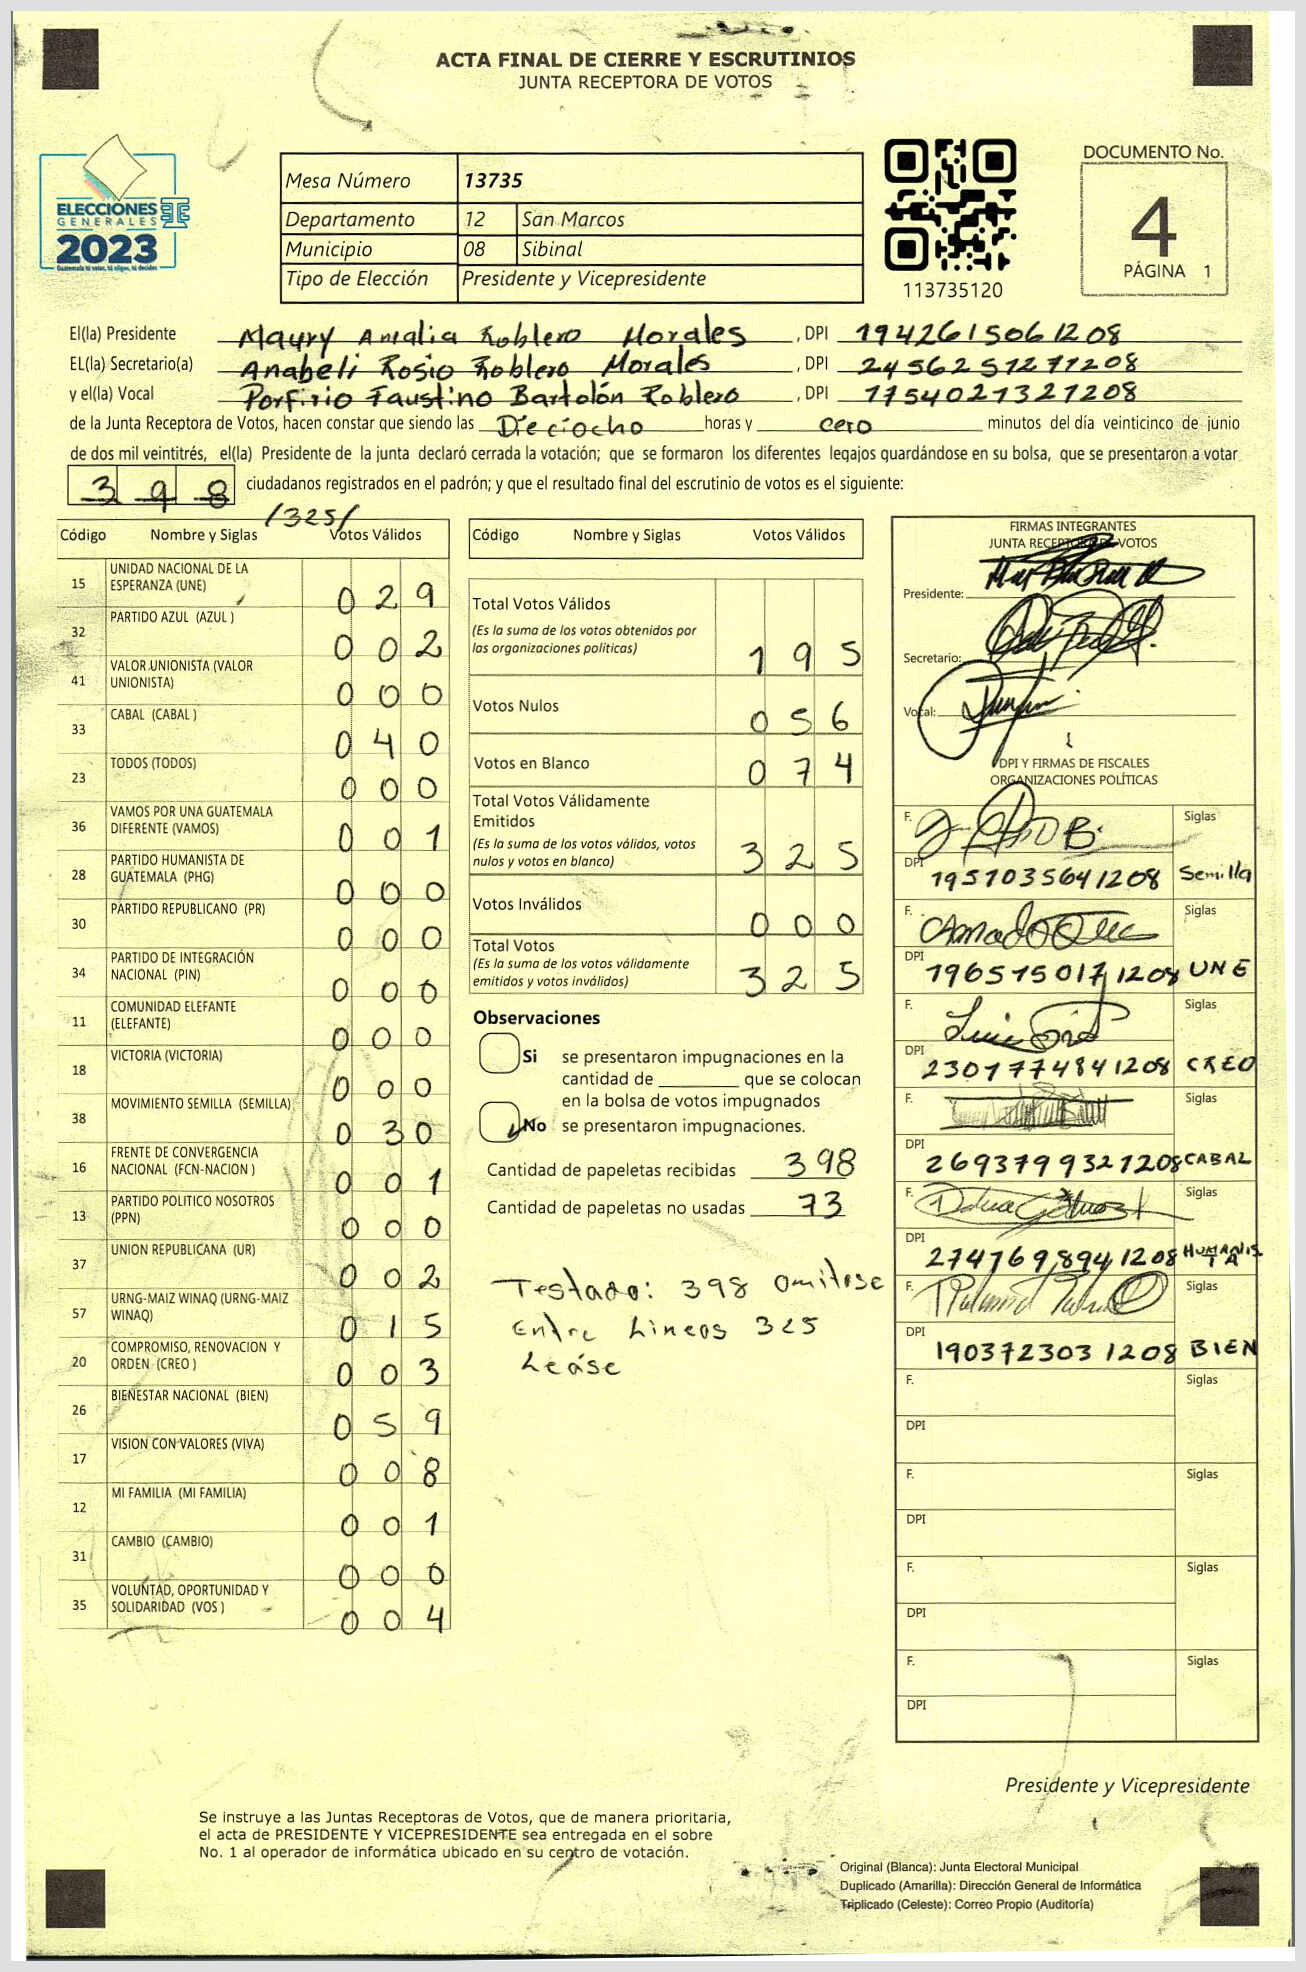 ACTA FINAL DE CIERRE Y ESCRUTINIOS
JUNTA RECEPTORA DE VOTOS
ELECCIONES
GENERALES
2023
Guatemala tú valor, tú eliges, tú decides
Mesa Número 13735
Departamento 12 San Marcos
Municipio 08 Sibinal
Tipo de Elección Presidente y Vicepresidente
113735120
DOCUMENTO No.
4
PÁGINA 1
El(la) Presidente Maury Amalia Roblero Morales , DPI 1942615061208
EL(la) Secretario(a) Anabeli Rosio Roblero Morales , DPI 2456257271208
y el(la) Vocal Porfirio Faustino Bartolón Roblero , DPI 1754027321208
de la Junta Receptora de Votos, hacen constar que siendo las Dieciocho horas y cero minutos del día veinticinco de junio
de dos mil veintitrés, el(la) Presidente de la junta declaró cerrada la votación; que se formaron los diferentes legajos guardándose en su bolsa, que se presentaron a votar
398 ciudadanos registrados en el padrón; y que el resultado final del escrutinio de votos es el siguiente:
/325/
Código Nombre y Siglas Votos Válidos
15 UNIDAD NACIONAL DE LA ESPERANZA (UNE) 029
32 PARTIDO AZUL (AZUL ) 002
41 VALOR UNIONISTA (VALOR UNIONISTA) 000
33 CABAL (CABAL ) 040
23 TODOS (TODOS) 000
36 VAMOS POR UNA GUATEMALA DIFERENTE (VAMOS) 001
28 PARTIDO HUMANISTA DE GUATEMALA (PHG) 000
30 PARTIDO REPUBLICANO (PR) 000
34 PARTIDO DE INTEGRACIÓN NACIONAL (PIN) 000
11 COMUNIDAD ELEFANTE (ELEFANTE) 000
18 VICTORIA (VICTORIA) 000
38 MOVIMIENTO SEMILLA (SEMILLA) 030
16 FRENTE DE CONVERGENCIA NACIONAL (FCN-NACION ) 001
13 PARTIDO POLITICO NOSOTROS (PPN) 000
37 UNION REPUBLICANA (UR) 002
57 URNG-MAIZ WINAQ (URNG-MAIZ WINAQ) 015
20 COMPROMISO, RENOVACION Y ORDEN (CREO ) 003
26 BIENESTAR NACIONAL (BIEN) 059
17 VISION CON VALORES (VIVA) 008
12 MI FAMILIA (MI FAMILIA) 001
31 CAMBIO (CAMBIO) 000
35 VOLUNTAD, OPORTUNIDAD Y SOLIDARIDAD (VOS ) 004
Código Nombre y Siglas Votos Válidos
Total Votos Válidos
(Es la suma de los votos obtenidos por
las organizaciones politicas) 195
Votos Nulos 056
Votos en Blanco 074
Total Votos Válidamente
Emitidos
(Es la suma de los votos válidos, votos
nulos y votos en blanco) 325
Votos Inválidos 000
Total Votos
(Es la suma de los votos válidamente
emitidos y votos inválidos) 325
Observaciones
Si se presentaron impugnaciones en la
cantidad de ________ que se colocan
en la bolsa de votos impugnados
No se presentaron impugnaciones.
Cantidad de papeletas recibidas 398
Cantidad de papeletas no usadas 73
Testado: 398 omitase
Entre Lineas 325
Leáse
FIRMAS INTEGRANTES
JUNTA RECEPTORA DE VOTOS
Presidente:
Secretario:
Vocal:
DPI Y FIRMAS DE FISCALES
ORGANIZACIONES POLÍTICAS
F. Siglas
DPI 1951035641208 Semilla
F. Siglas
DPI 1965150171208 UNE
F. Siglas
DPI 2301774841208 CREO
F. Siglas
DPI 2693799321208 CABAL
F. Siglas
DPI 2747698941208 HUMANISTA
F. Siglas
DPI 1903723031208 BIEN
F. Siglas
DPI
F. Siglas
DPI
F. Siglas
DPI
F. Siglas
DPI
Presidente y Vicepresidente
Se instruye a las Juntas Receptoras de Votos, que de manera prioritaria,
el acta de PRESIDENTE Y VICEPRESIDENTE sea entregada en el sobre
No. 1 al operador de informática ubicado en su centro de votación.
Original (Blanca): Junta Electoral Municipal
Duplicado (Amarilla): Dirección General de Informática
Triplicado (Celeste): Correo Propio (Auditoría)